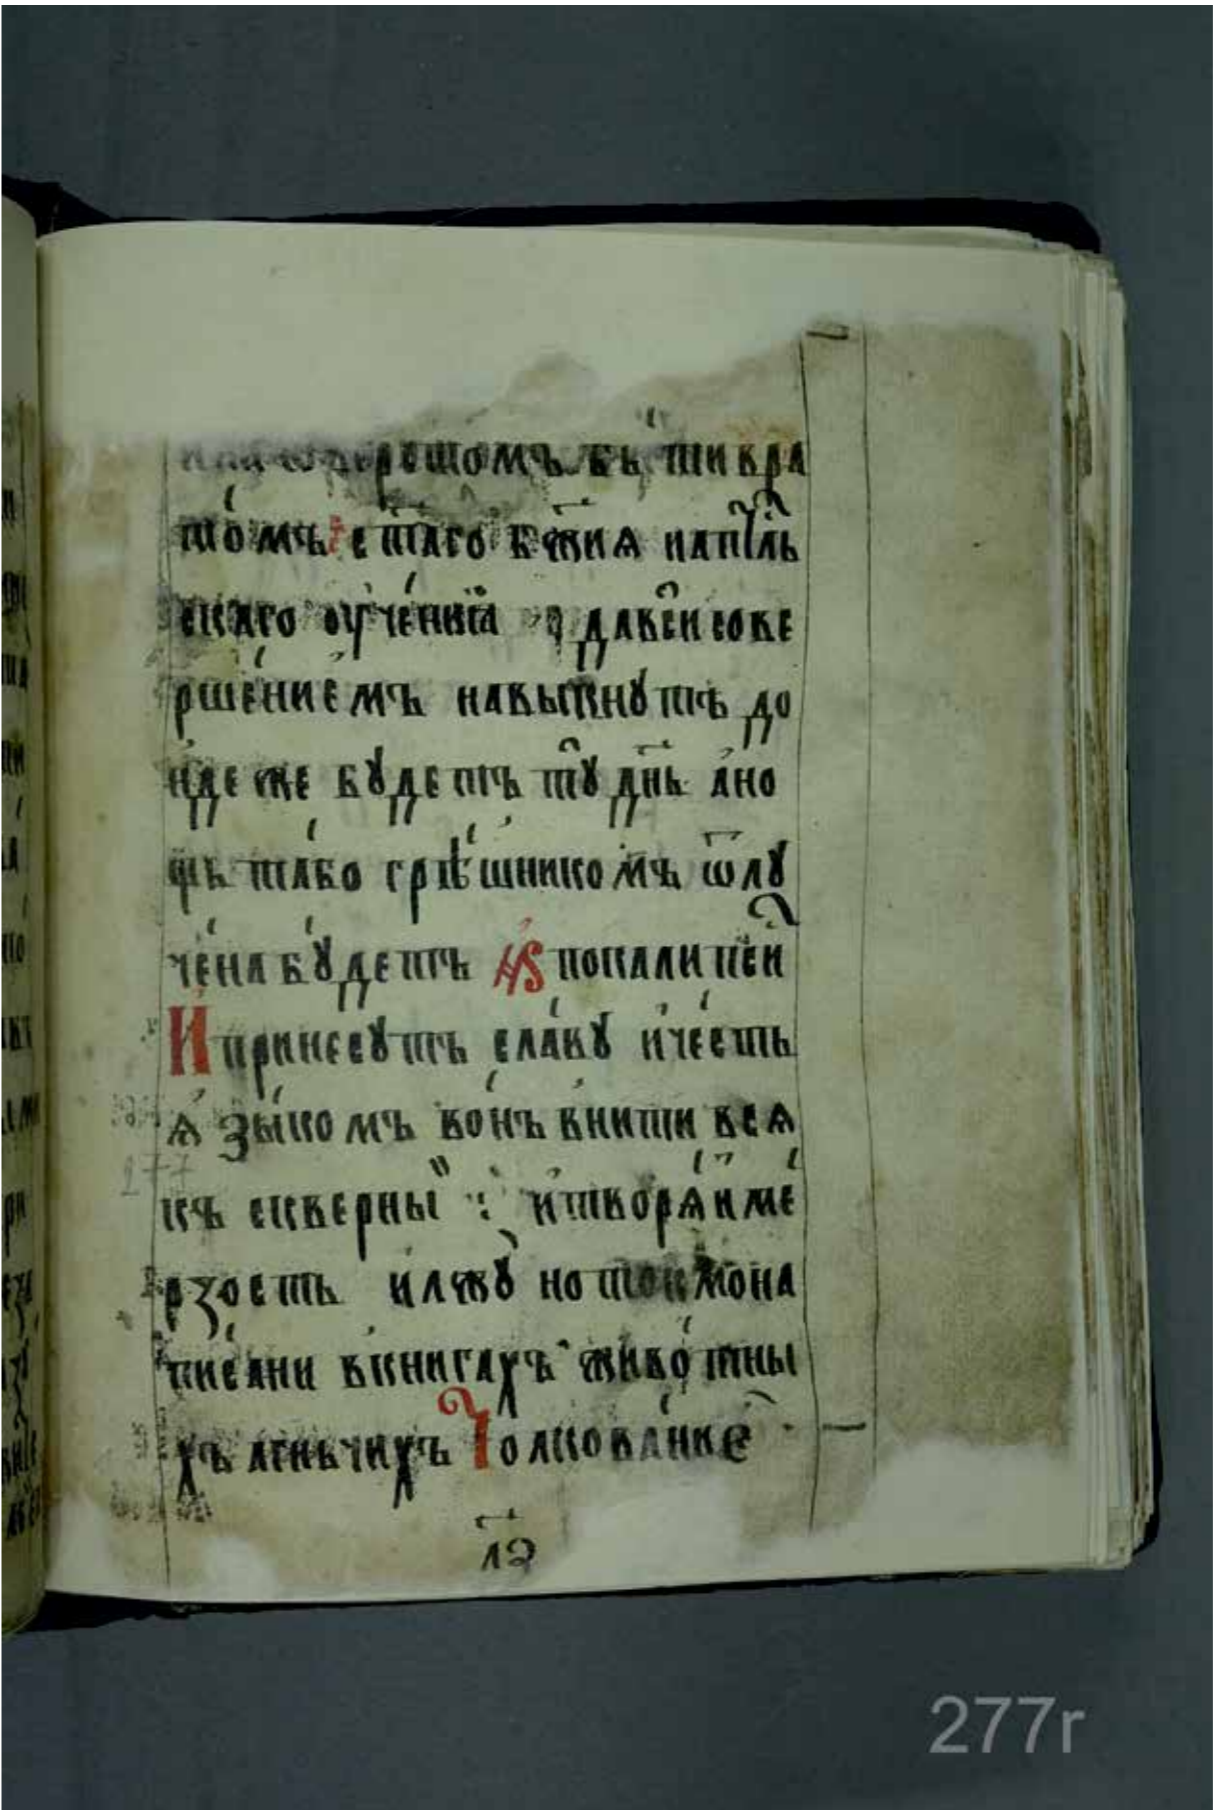 бъ ти вра
томъ с͠таго б͠жия иапⷭ҇лъ
скаго оу҆че́ниꙗ давси сове
рше́ниемъ навыкнутъ до
ндеже будетъ ту д͠нь а҆но
щь та́бо грѣшникомъ ѿлу
чена будетъ нѕ покалипсⷭ҇и
И҆ принесутъ сла́ву и҆че́сть
ѧ҆зы́комъ во́нъ вни́ти всѧ
къ скверны̏ и҆творѧ́и ме́
рзость и҆лжу̀ но токмо на
пи́сани вкни́гахъ живо́тны
хъ агньчихъ Толкова́ние
277
л҃ѳ
277r